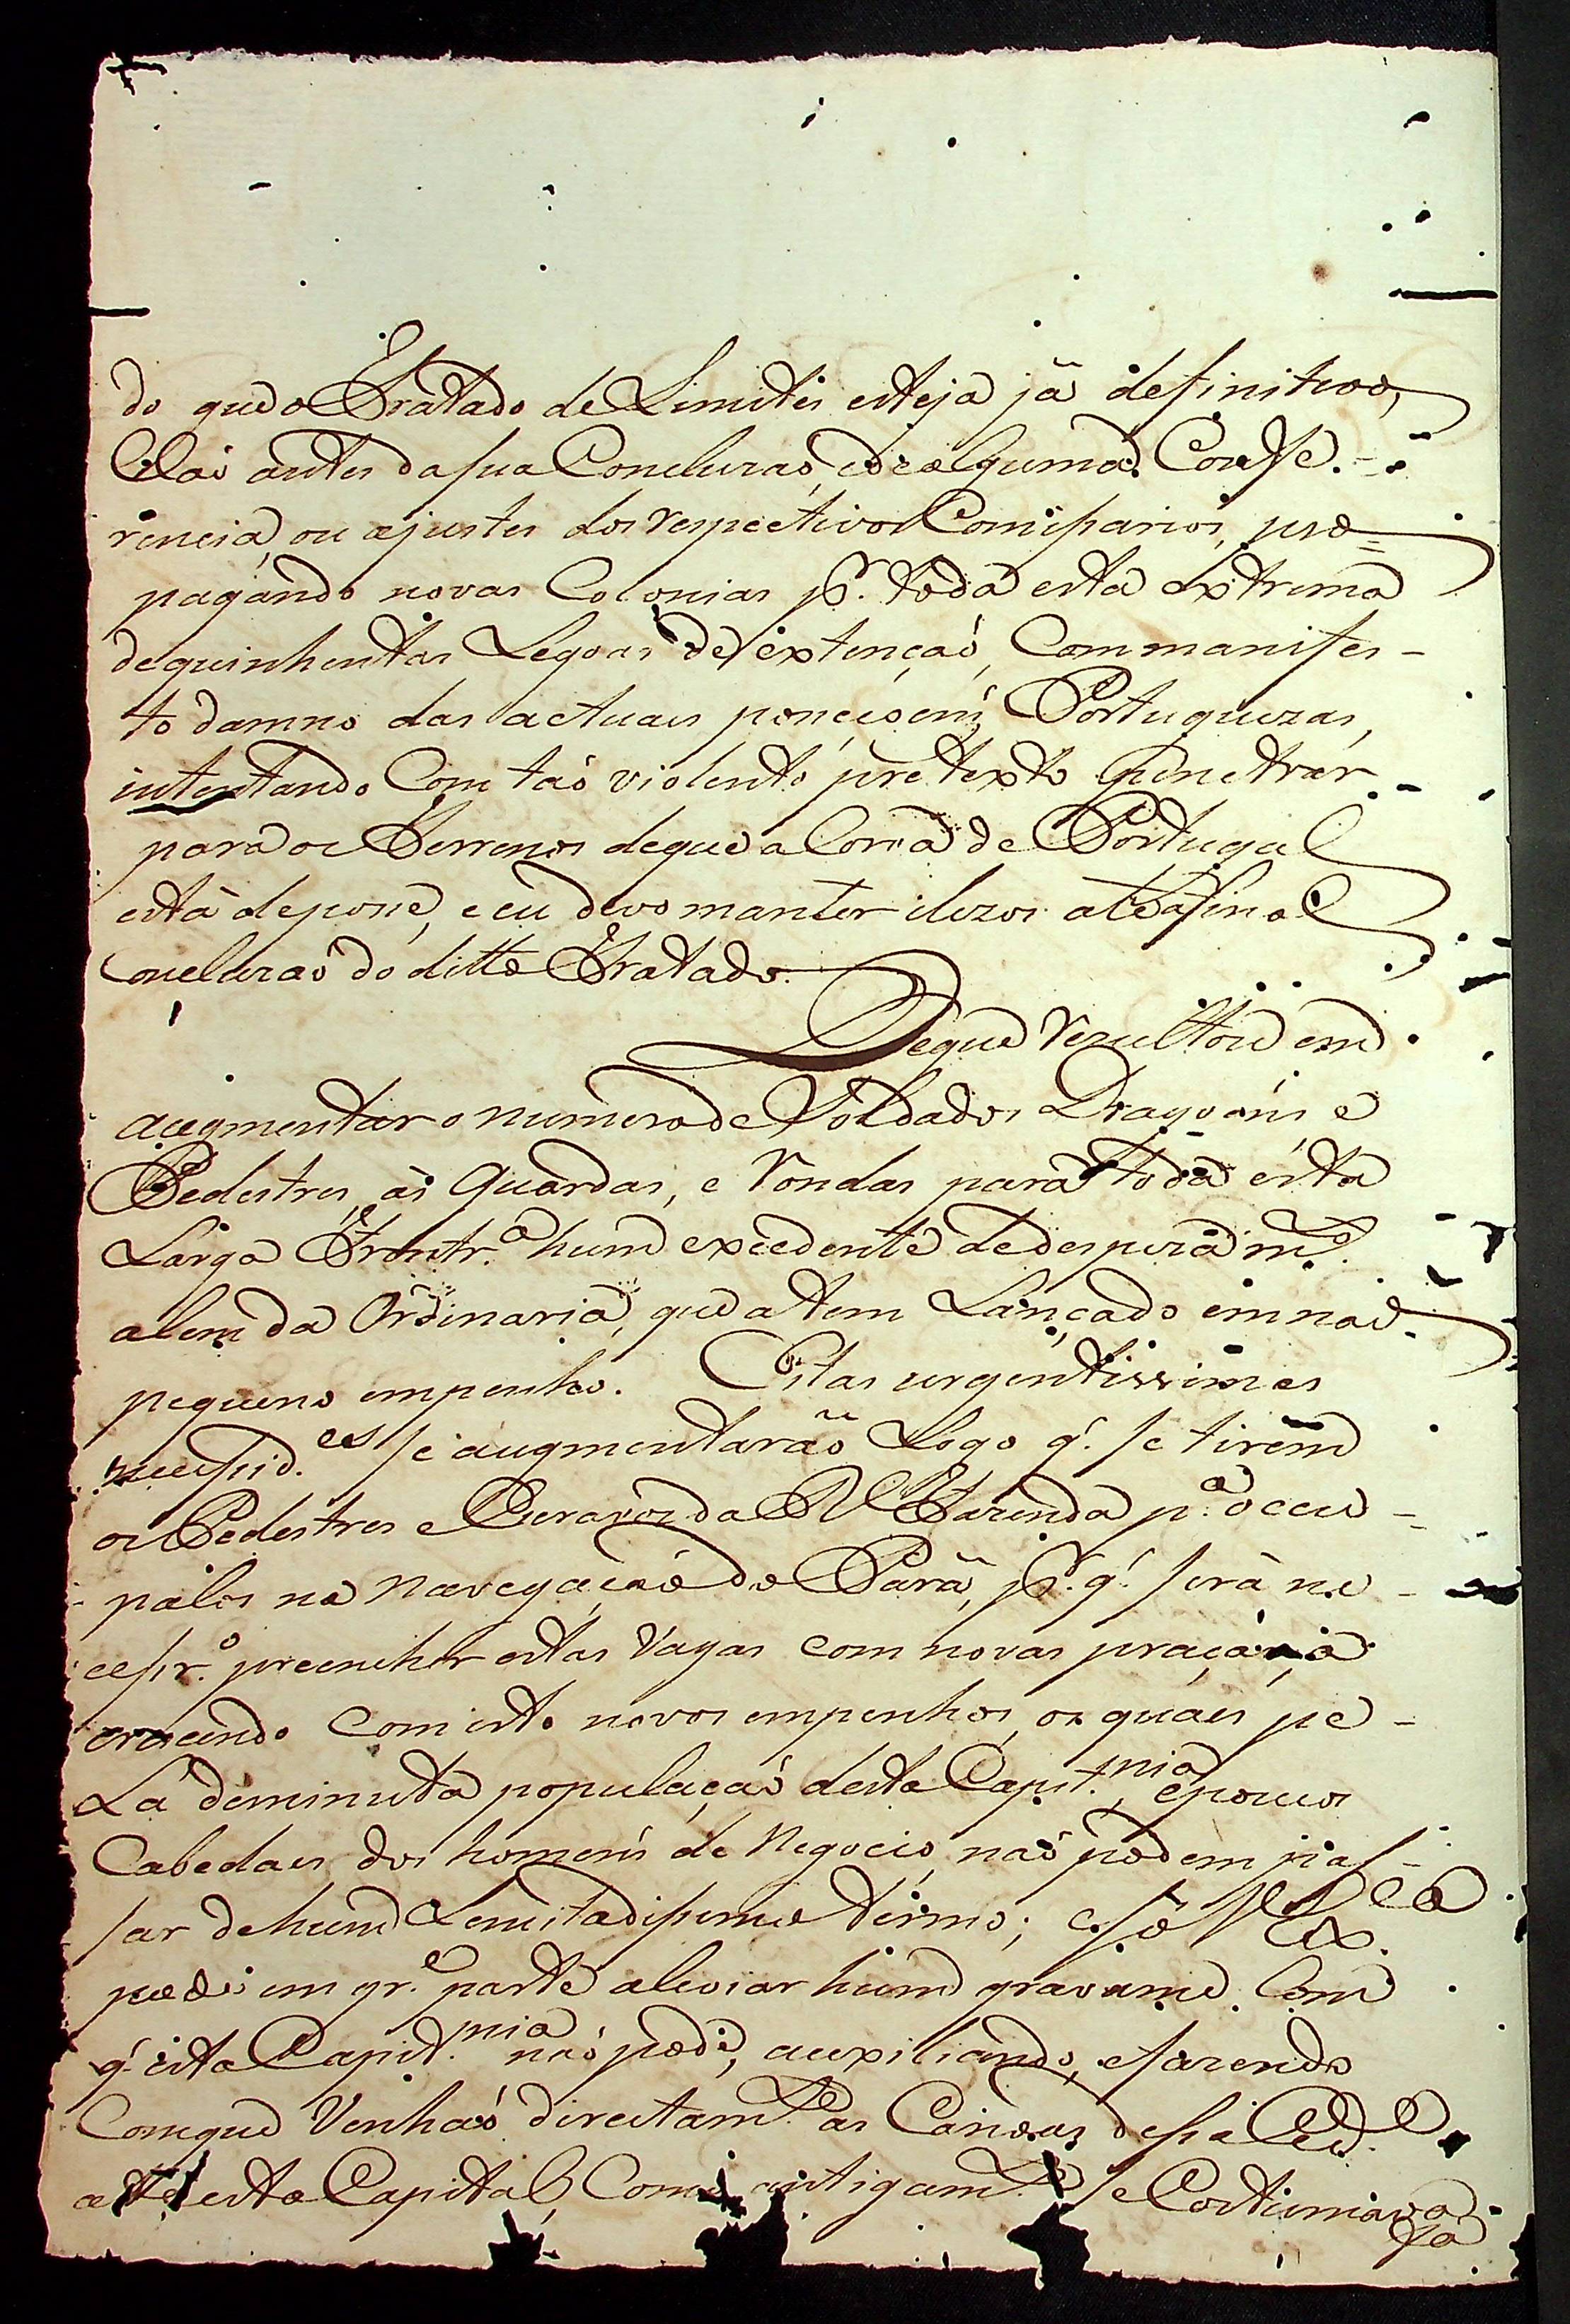 do que o Tratado de Limites esteja já definitivo,
e las antes da sua Concluzaõ, e de alguma Confe-
rencia, ou ajustes dos respectivos Comissarios, pro=
pagando novas Colonias p.r toda esta extrema
de quinhentas Legoas de extençaõ, Com manifes-
to damno das actuais poncissoens Portuguezas,
intentando Com taõ violento pretexto penetrar
para os Terrenos de que a Coroa de Portugal
está de posse, e eu devo manter ilezos até a final
Concluzaõ do ditto Tratado.
De que rezultou em
augmentar o numero de Soldados Dragoens e
Pedestres, ás Guardas, e rondas para toda esta
Larga Frontr.a hum excedente de despeza m.to
alem da Ordinaria, que a tem Lançado em naõ
pequeno empenho. Estas urgentissimas
necessid.es se augmentaraõ Logo q.' se tirem
os Pedestres e Escravos da R.l Fazenda p.a occu-
palos na Navegaçaõ do Pará, p.r q.' será ne-
cessr.o preencher estas Vagas com novas praças,
crescendo com isto novos empenhos, os quais pe-
La deminuta populaçaõ desta Capit.nia, e poucos
Cabedaes dos homens de Negocio, naõ podem pas-
sar de hum Lemitadissimo termo; e só V Ex.ca
pode em gr.e parte aleviar hum gravame Com
q.' esta Capit.nia naõ pode, auxiliando, e fazendo
Com que Venhaõ directam.te as Canoas dessa Cid.e
até esta Capital, Como antigam.te se Costumava